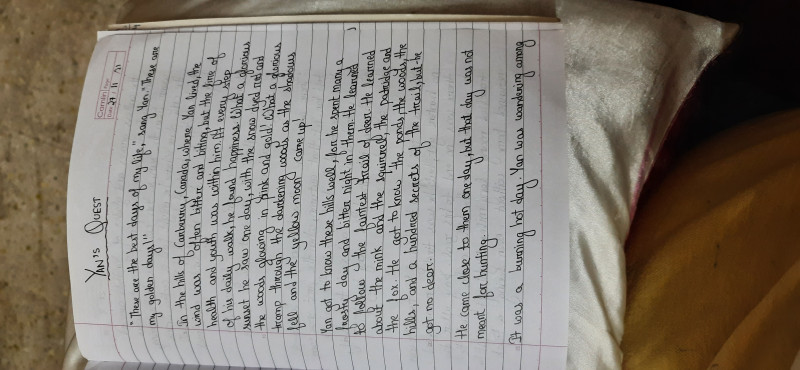 YAN'S QUEST
Date 27.11.21
"These are the best days of my life," sang Yan. "These are
my golden days!"
In the hills of Canberry, Canada, where Yan lived, the
wind was often bitter and biting, but the fire of
health and youth was within him. At every step
of his daily walk, he found happiness. What a glorious
sunset he saw one day, with the snow dyed red and
the woods glowing in pink and gold! What a glorious
tramp through the darkening woods as the shadows
fell and the yellow moon came up!
Yan got to know these hills well, for he spent many a
frosty day and bitter night in them. He learned
to follow the faintest trail of deer. He learned
about the mink and the squirrel, the patridge and
the fox. He got to know the ponds, the woods, the
hills, and a hundred secrets of the trail, but he
got no deer.
He came close to them one day, but that day was not
meant for hunting.
It was a burning hot day. Yan was wandering among